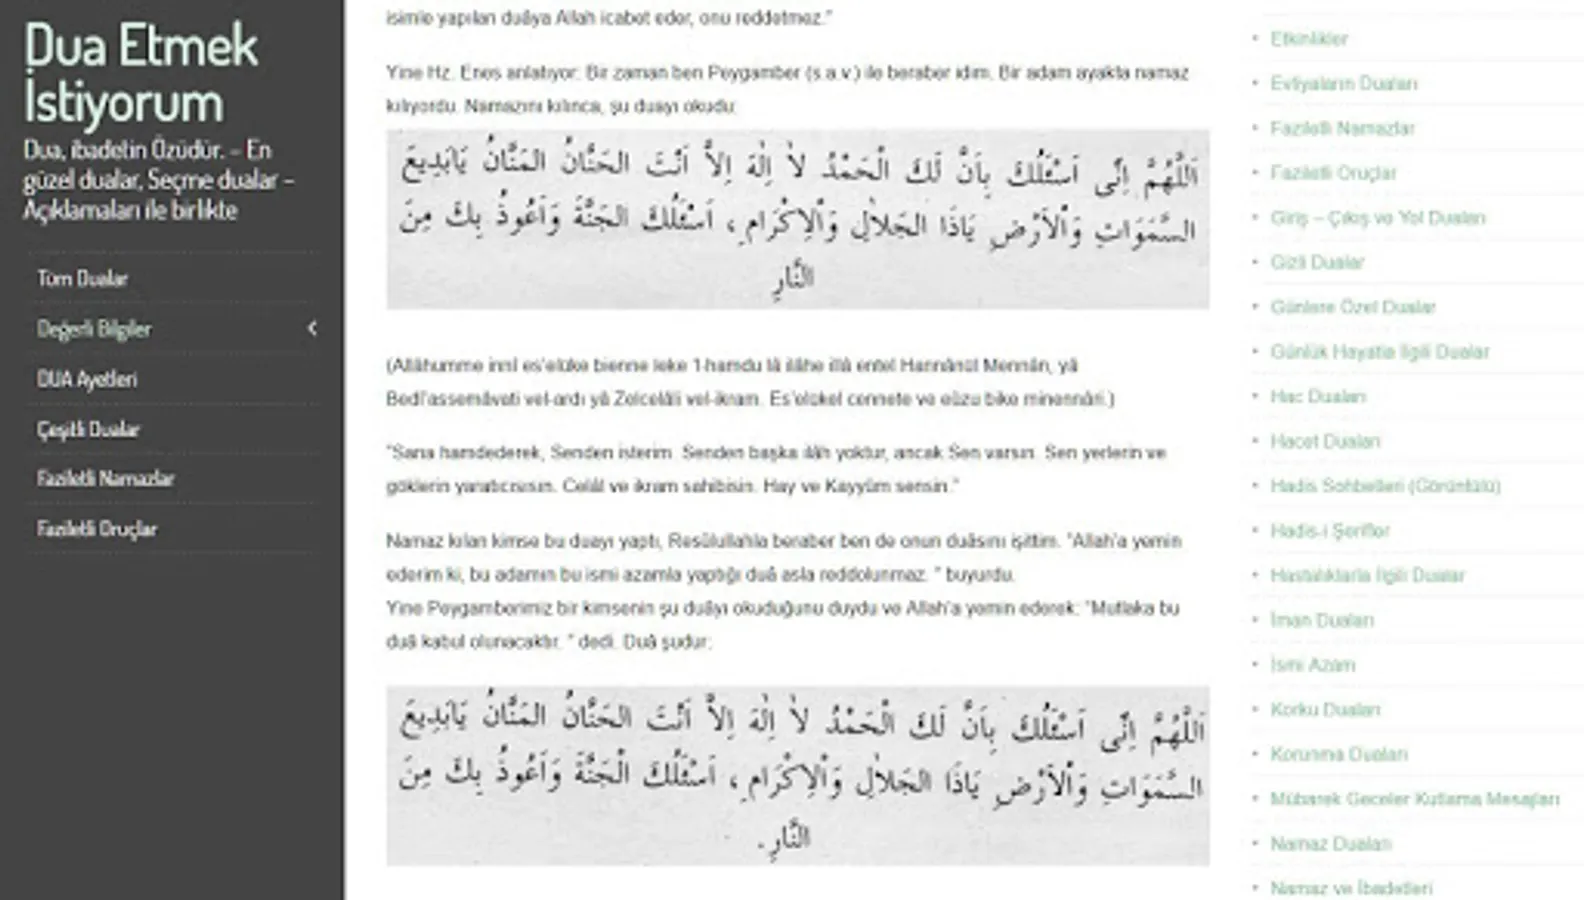 Dua Etmek
İstiyorum
Dua, ibadetin Özüdür. – En
güzel dualar, Seçme dualar –
Açıklamaları ile birlikte
Tüm Dualar
Değerli Bilgiler
DUA Ayetleri
Çeşitli Dualar
Faziletli Namazlar
Faziletli Oruçlar
isimle yapılan duâya Allah icabet eder, onu reddetmez."
Yine Hz. Enes anlatıyor: Bir zaman ben Peygamber (s.a.v.) ile beraber idim. Bir adam ayakta namaz
kılıyordu. Namazını kılınca, şu duayı okudu:
اَللّٰهُمَّ اِنِّى اَسْئَلُكَ بِاَنَّ لَكَ الْحَمْدُ لاٰ اِلٰهَ اِلاَّ اَنْتَ الحَنَّانُ المَنَّانُ يَابَدِيعَ
السَّمَوَاتِ وَاْلاَرْضِ يَاذَا الجَلاٰلِ وَاْلاِكْرَامِ، اَسْئَلُكَ الجَنَّةَ وَاَعُوذُ بِكَ مِنَ
النَّارِ
(Allâhumme innî es'elüke bienne leke 'l-hamdu lâ ilâhe illâ entel Hannânül Mennân, yâ
Bedî'assemâvati vel-ardı yâ Zelcelâli vel-ikram. Es'elükel cennete ve eûzu bike minennâri.)
"Sana hamdederek, Senden isterim. Senden başka ilâh yoktur, ancak Sen varsın. Sen yerlerin ve
göklerin yaratıcısısın. Celâl ve ikram sahibisin. Hay ve Kayyûm sensin."
Namaz kılan kimse bu duayı yaptı, Resûlullahla beraber ben de onun duâsını işittim. "Allah'a yemin
ederim ki, bu adamın bu ismi azamla yaptığı duâ asla reddolunmaz. " buyurdu.
Yine Peygamberimiz bir kimsenin şu duâyı okuduğunu duydu ve Allah'a yemin ederek: "Mutlaka bu
duâ kabul olunacaktır. " dedi. Duâ şudur:
اَللّٰهُمَّ اِنِّى اَسْئَلُكَ بِاَنَّ لَكَ الْحَمْدُ لاٰ اِلٰهَ اِلاَّ اَنْتَ الحَنَّانُ المَنَّانُ يَابَدِيعَ
السَّمَوَاتِ وَاْلاَرْضِ يَاذَا الجَلاٰلِ وَاْلاِكْرَامِ، اَسْئَلُكَ الْجَنَّةَ وَاَعُوذُ بِكَ مِنَ
النَّارِ.
Etkinlikler
Evliyaların Duaları
Faziletli Namazlar
Faziletli Oruçlar
Giriş – Çıkış ve Yol Duaları
Gizli Dualar
Günlere Özel Dualar
Günlük Hayatla İlgili Dualar
Hac Duaları
Hacet Duaları
Hadis Sohbetleri (Görüntülü)
Hadis-i Şerifler
Hastalıklarla İlgili Dualar
İman Duaları
İsmi Azam
Korku Duaları
Korunma Duaları
Mübarek Geceler Kutlama Mesajları
Namaz Duaları
Namaz ve İbadetleri